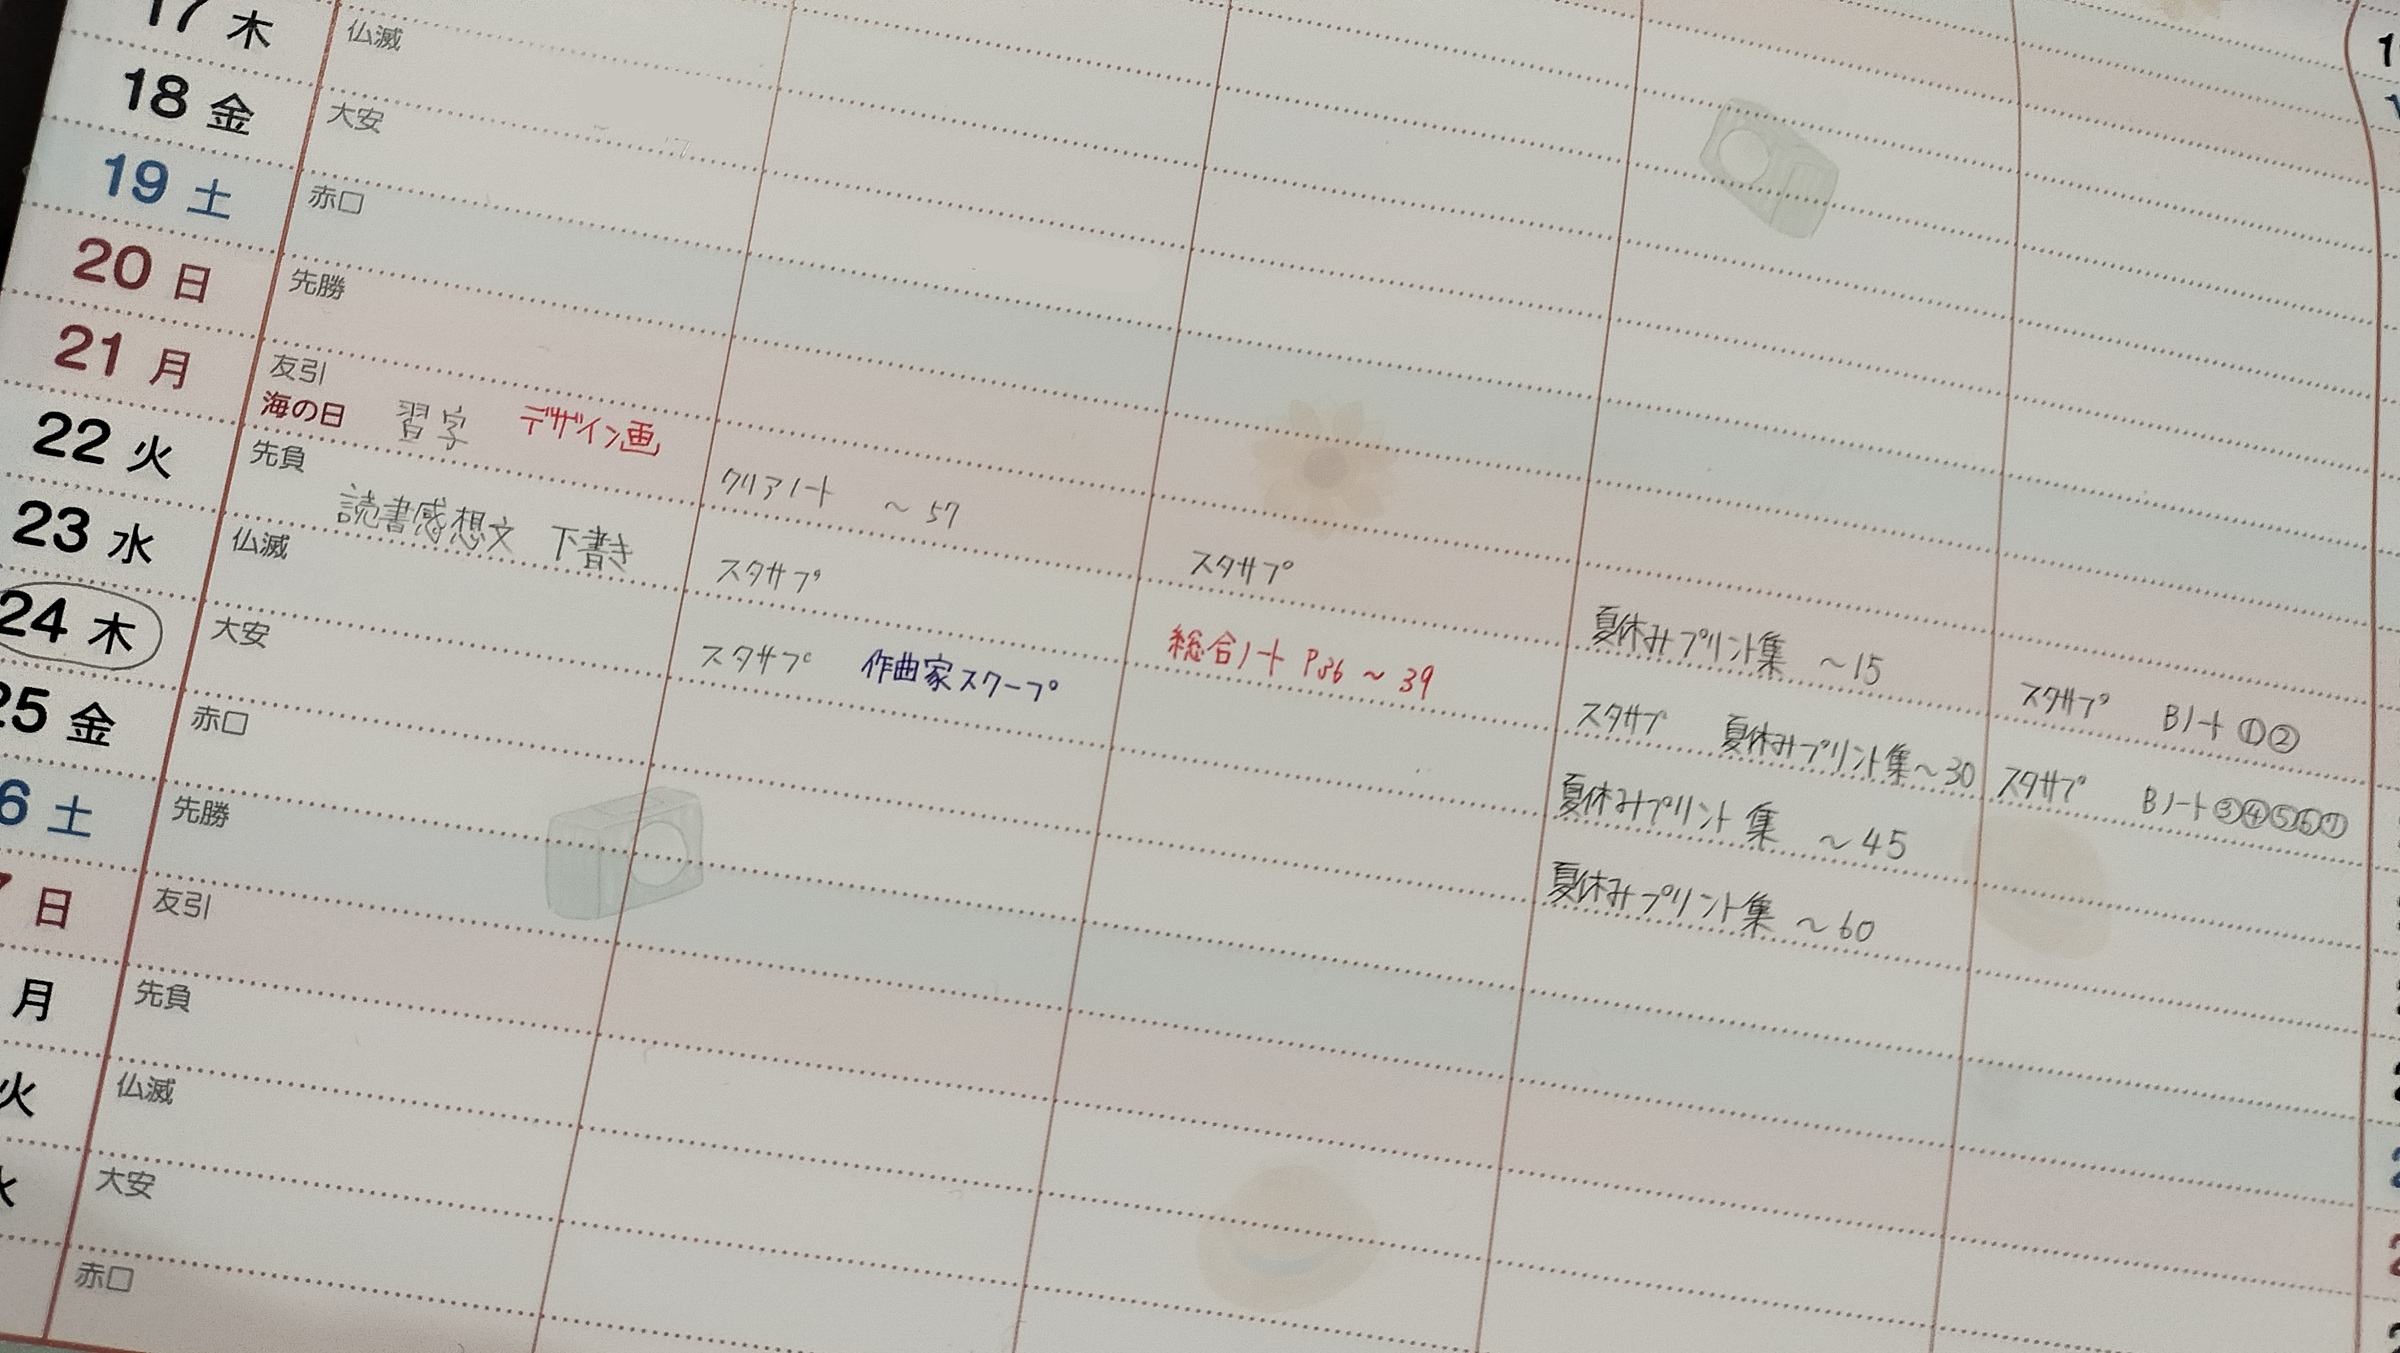 17 木 仏滅
18 金 大安
19 土 赤口
20 日 先勝
21 月 友引
海の日 習字 デザイン画 クリアノート ～57 スタサプ 夏休みプリント集 ～15 スタサプ Bノート ①②
22 火 先負
読書感想文 下書き スタサプ 総合ノート P36 ～ 39 スタサプ 夏休みプリント集～30 スタサプ Bノート③④⑤⑥⑦
23 水 仏滅 スタサプ 作曲家スクープ 夏休みプリント集 ～45
24 木 大安 夏休みプリント集 ～60
25 金 赤口
6 土 先勝
7 日 友引
月 先負
火 仏滅
水 大安
赤口